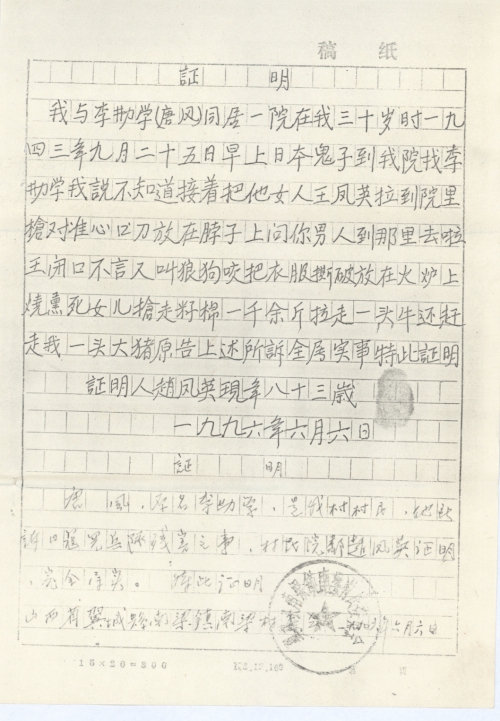 稿 纸
証 明
我与李助学(唐风)同居一院在我三十岁时一九
四三年九月二十五日早上日本鬼子到我院找李
助学我説不知道接着把他女人王凤英拉到院里
槍对准心口刀放在脖子上问你男人到那里去啦
王闭口不言又叫狼狗咬把衣服撕破放在火炉上
燒熏死女儿搶走籽棉一千余斤拉走一头牛还赶
走我一头大猪原告上述所訴全居实事特此証明
証明人趙凤英現年八十三歲
一九九六年六月六日
証 明
唐风,原名李助学,是我村村民,他所
訴日 之事,村民院鄰趙凤英证明
,完全 实。特此证明
山西省翼城縣南梁镇南梁村
六月六日
15×20=300